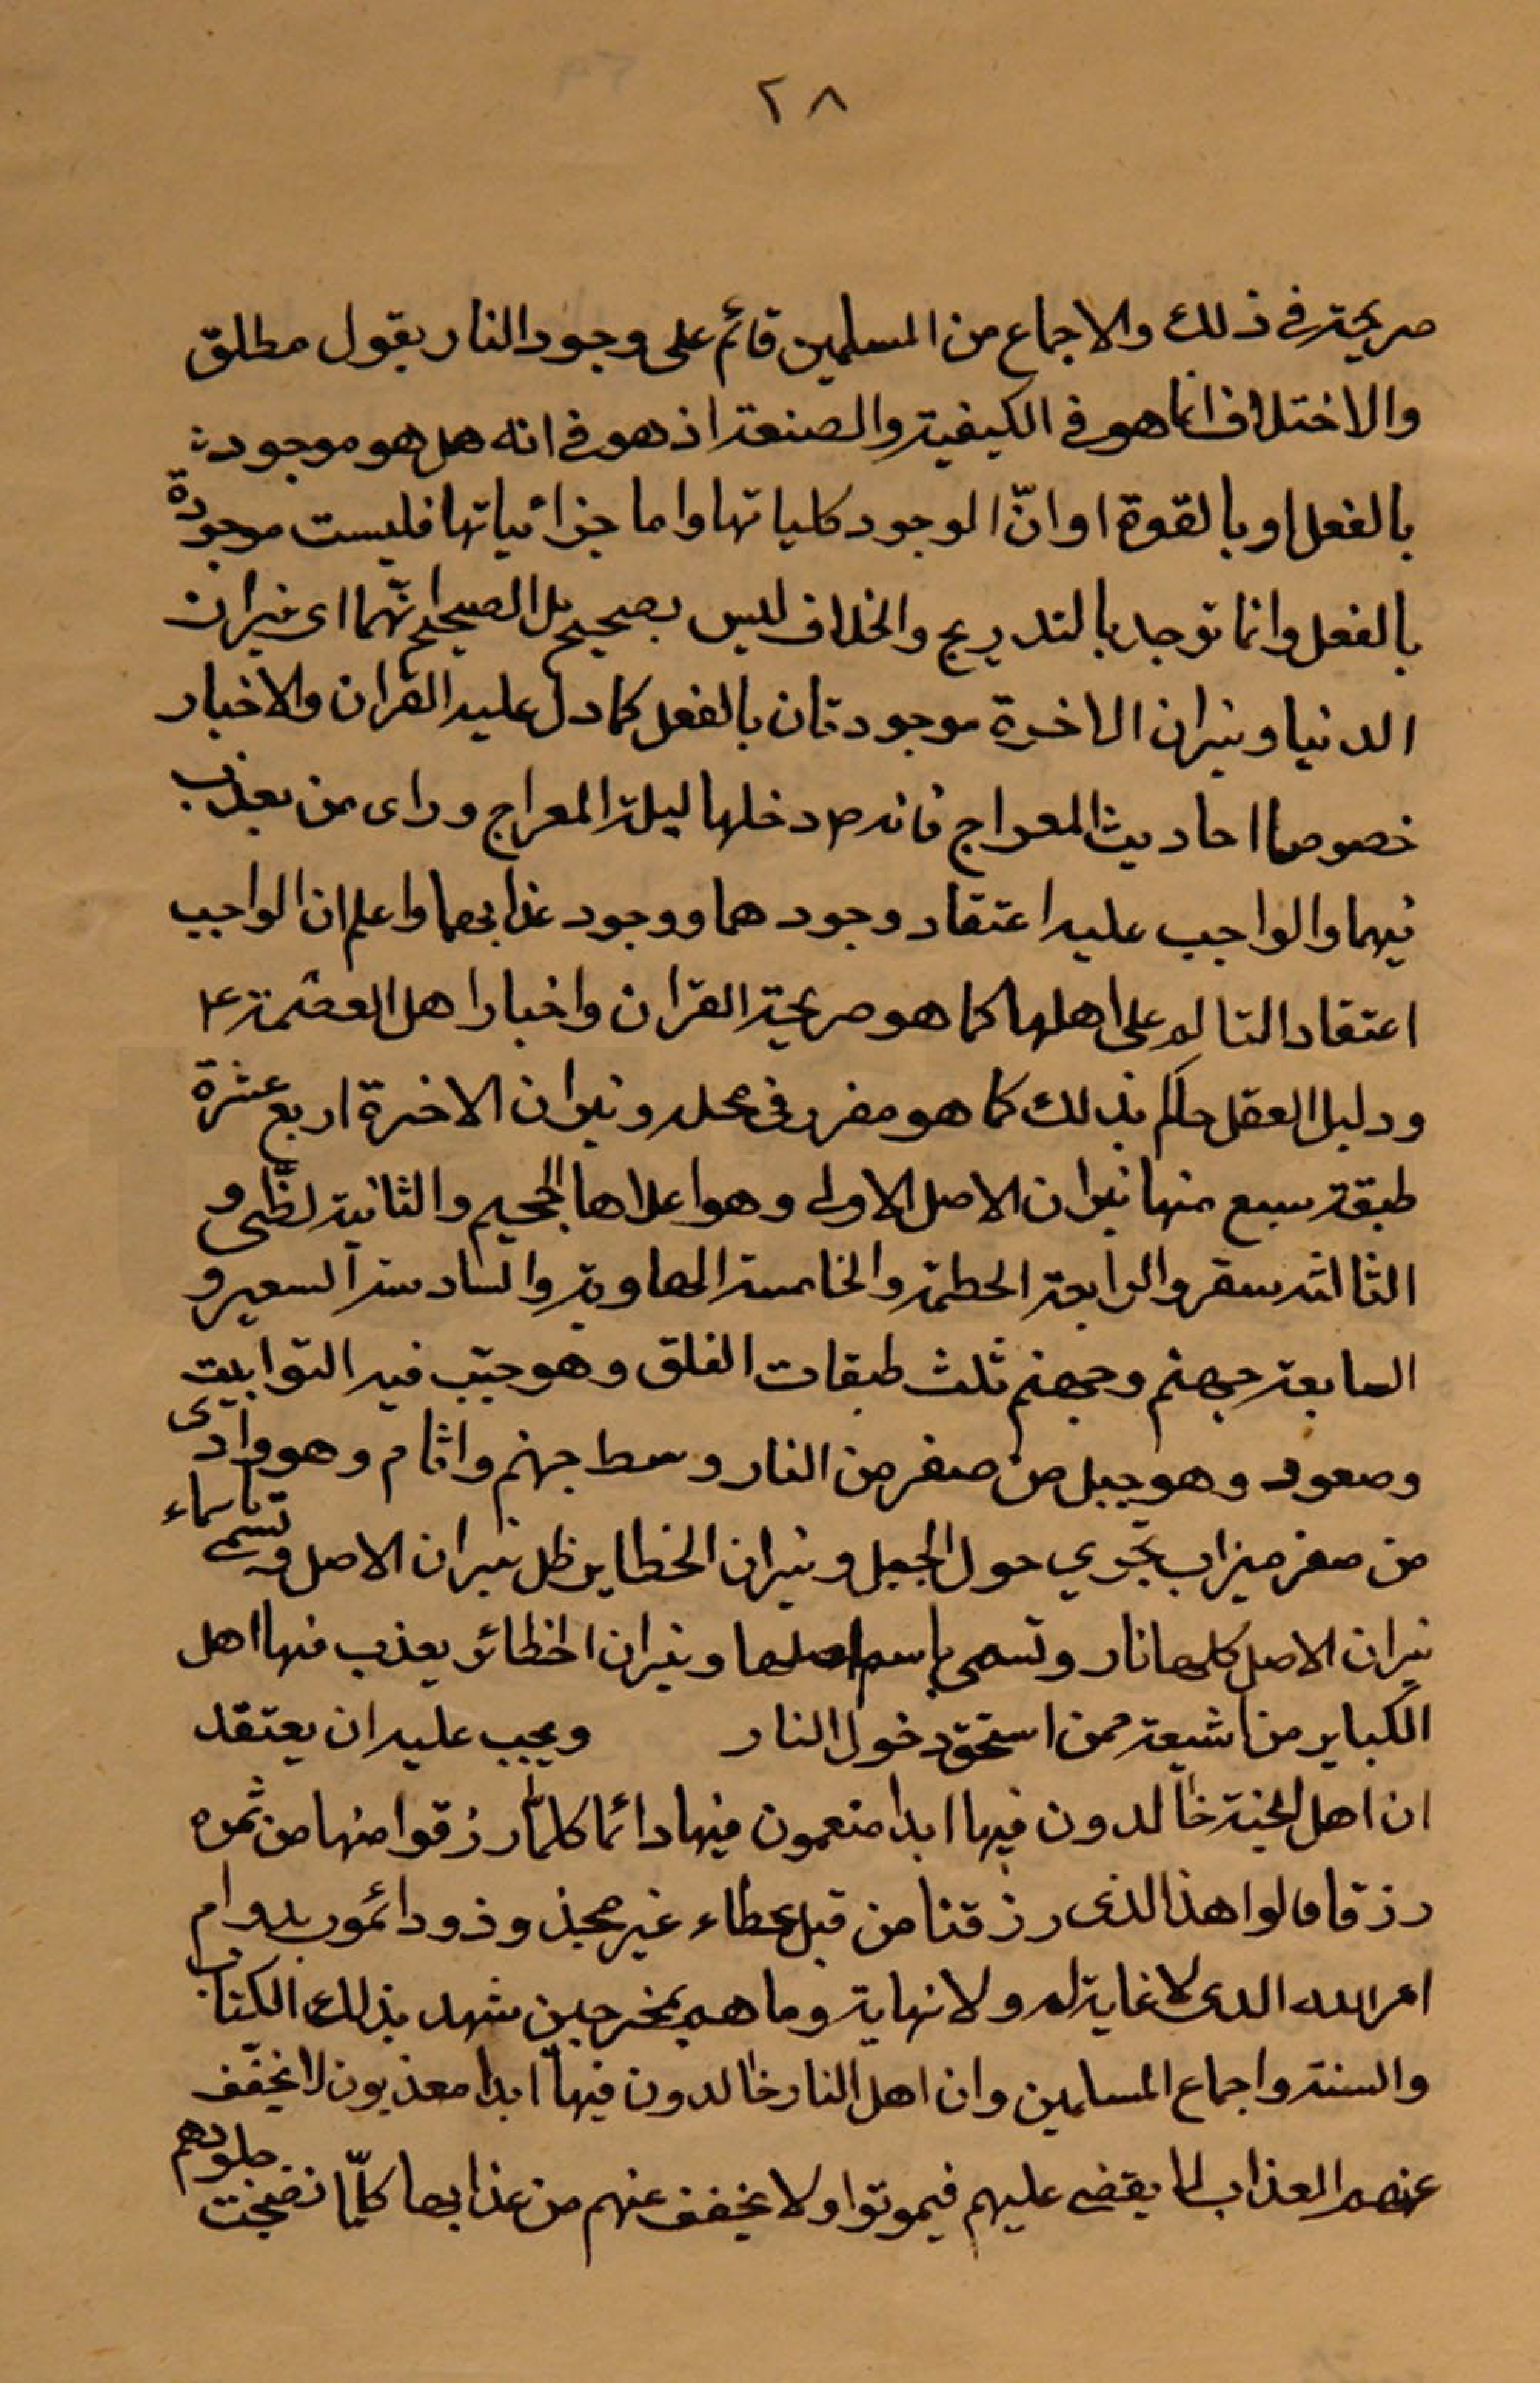 ٢٨
صريحة في ذلك والاجماع من المسلمين قائم على وجود النار بقول مطلق
والاختلاف انما هو في الكيفية والصنعة اذ هو في انه هل هو موجودة
بالفعل او بالقوة او انّ الوجود كلياتها واما جزائياتها فليست موجودة
بالفعل وانما توجد بالتدريج والخلاف ليس بصحيح بل الصحيح انّهما اى نيران
الدنيا ونيران الاخرة موجودتان بالفعل كما دل عليه القران والاخبار
خصوصا احاديث المعراج فانه ص دخلها ليلة المعراج وراى من يعذب
فيهما والواجب عليه اعتقاد وجودهما ووجود عذابهما واعلم ان الواجب
اعتقاد التالم على اهلها كما هو صريحة القران واخبار اهل العصمة ع
ودليل العقل حاكم بذلك كما هو مقرر في محله ونيران الاخرة اربع عشرة
طبقة سبع منها نيران الاصل الاولى وهو اعلاها الجحيم والثانية لظى و
الثالثة سقر والرابعة الحطمة والخامسة الهاوية والسادسة السعير و
السابعة جهنم وجهنم ثلث طبقات الفلق وهو جبّ فيه التوابيت
وصعود وهو جبل من صفر من النار وسط جهنم واثام وهو وادى
من صفر ميزاب يجري حول الجبل ونيران الخطاير ظل نيران الاصل وتسمى باسماء
نيران الاصل كلها نار وتسمى باسم اصلها ونيران الخطائر يعذب فيها اهل
الكباير من الشيعة ممن استحق دخول النار ويجب عليه ان يعتقد
ان اهل الجنة خالدون فيها ابدا منعمون فيها دائما كلمّا رزقوا منها من ثمره
رزقا قالوا هذا الذى رزقنا من قبل عطاء غير مجذوذ ودائمون بدوام
امر الله الذى لا غاية له ولا نهاية وما هم بمخرجين شهد بذلك الكتاب
والسنة واجماع المسلمين وان اهل النار خالدون فيها ابدا معذبون لا يخفّف
عنهم العذاب لا يقضى عليهم فيموتوا ولا يخفف عنهم من عذابها كلّما نضجت جلودهم